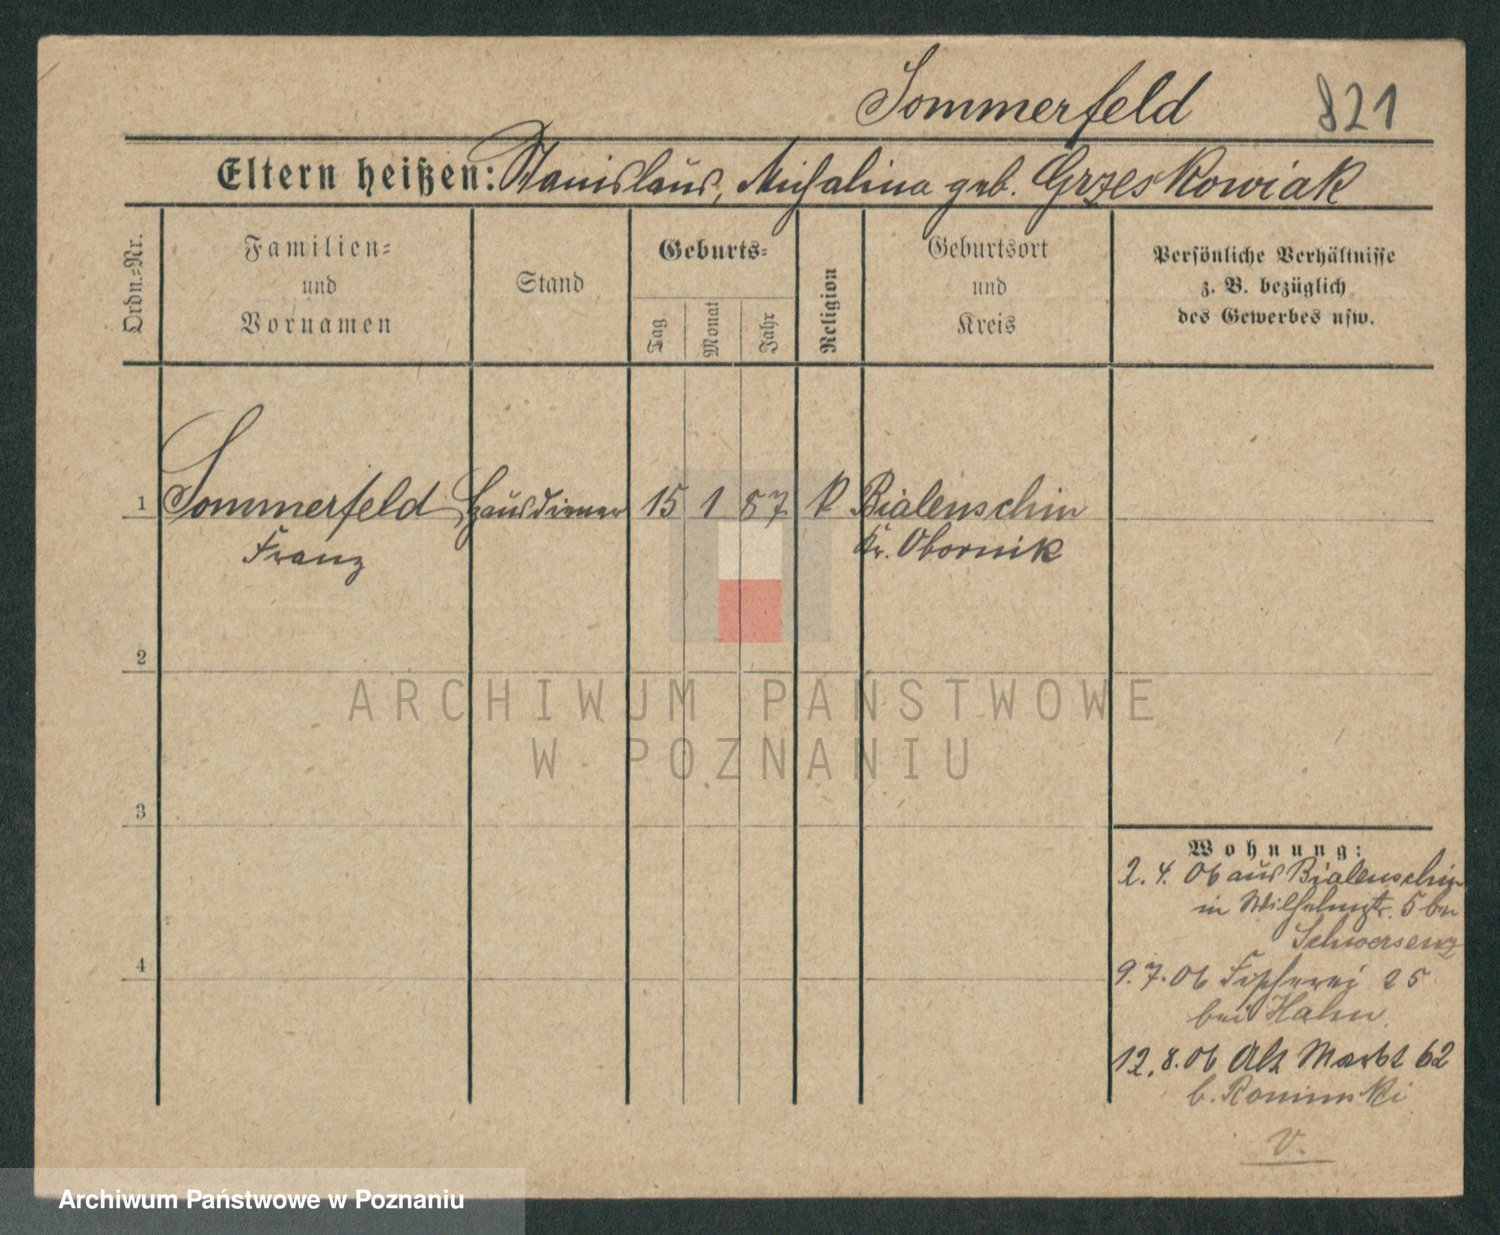 Sommerfeld 821
Eltern heißen: Stanislaus, Michalina geb. Grzeskowiak
Ordn.=Nr.
Familien=
und
Vornamen
Stand
Geburts=
Tag
Monat
Jahr
Religion
Geburtsort
und
Kreis
Persönliche Verhältnisse
z. B. bezüglich
des Gewerbes usw.
1 Sommerfeld Hausdiener 15 1 87 k Bialenschin
Franz Kr. Obornik
2
ARCHIWUM PAŃSTWOWE
W POZNANIU
3
Wohnung:
2. 4. 06 aus Bialenschin
in Wilhelmstr. 5 bei
Schwersenz
4
9. 7. 06 Fischerei 25
bei Hahn
12. 8. 06 Alt Markt 62
b.
v.
Archiwum Państwowe w Poznaniu